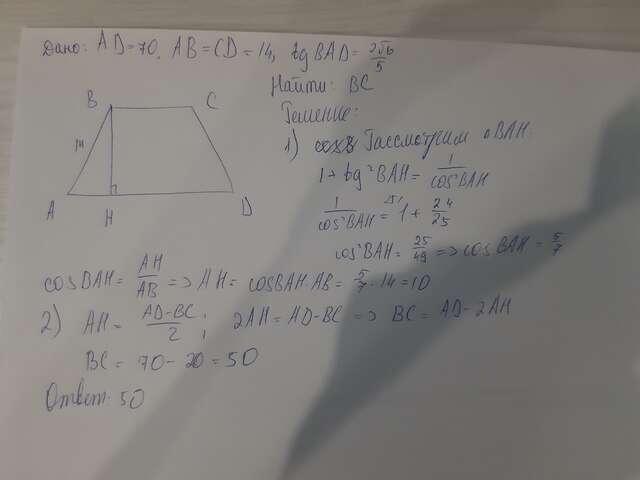 Дано: AD=70, AB=CD=14, tg BAD= 2√6/5
Найти: BC
Решение:
B C
14
A H D
1) Рассмотрим △BAH.
1+tg²BAH= 1/cos²BAH
1/cos²BAH = 1+ 24/25
cos²BAH= 25/49 => cos BAH= 5/7
cosBAH= AH/AB => AH= cosBAH·AB= 5/7·14=10
2) AH= AD-BC/2; 2AH=AD-BC => BC= AD-2AH
BC= 70-20=50
Ответ: 50